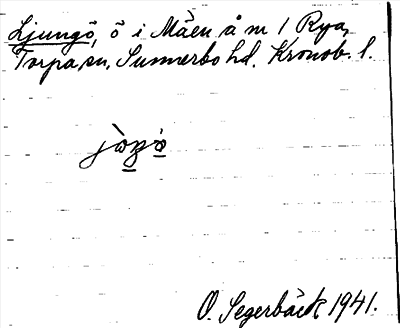 Ljungö, ö i Måen å m 1 Rya,
Torpa sn, Sunnerbo hd. Kronob. l.
O. Segerbäck 1941.